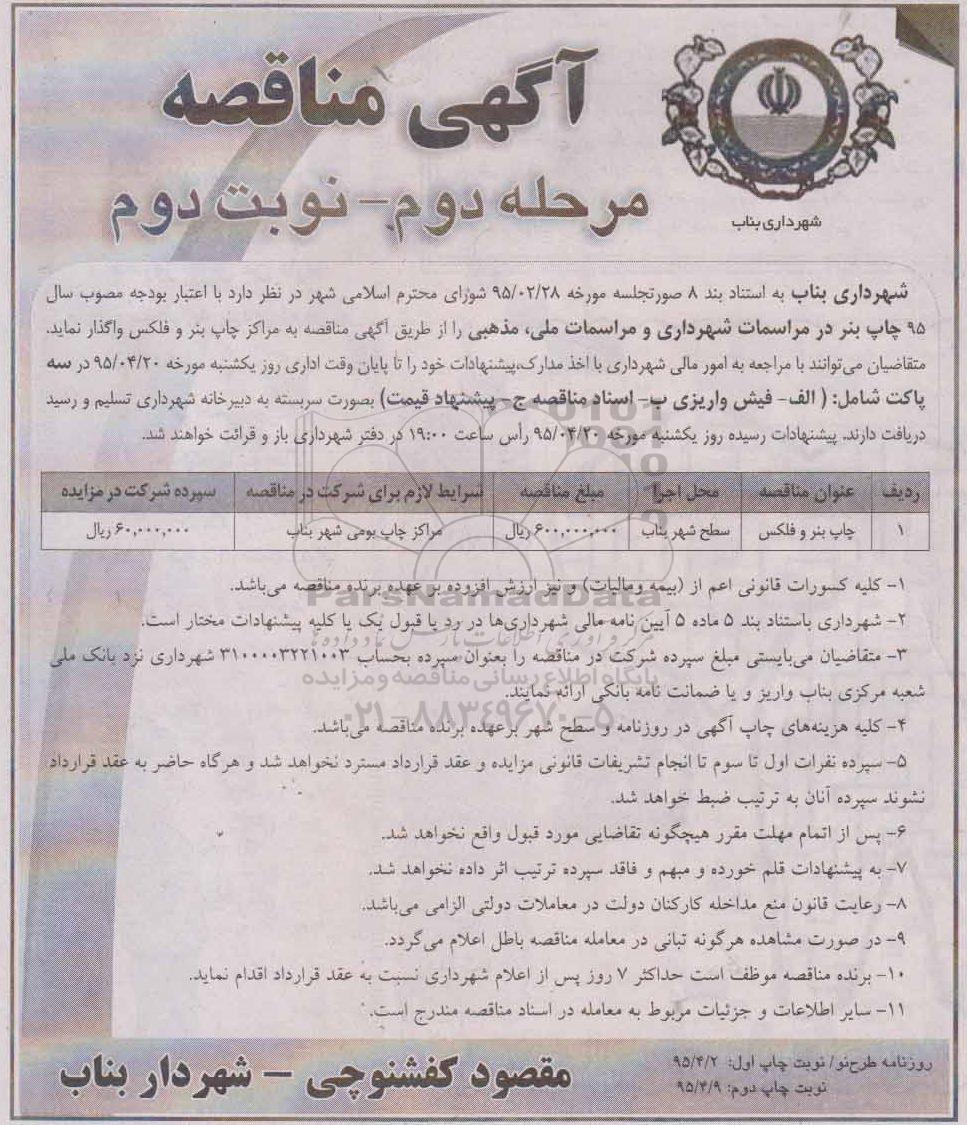 آگهی مناقصه
مرحله دوم - نوبت دوم
شهرداری بناب
شهرداری بناب به استناد بند ۸ صورتجلسه مورخه ۹۵/۰۲/۲۸ شورای محترم اسلامی شهر در نظر دارد با اعتبار بودجه مصوب سال
۹۵ چاپ بنر در مراسمات شهرداری و مراسمات ملی، مذهبی را از طریق آگهی مناقصه به مراکز چاپ بنر و فلکس واگذار نماید.
متقاضیان می‌توانند با مراجعه به امور مالی شهرداری با اخذ مدارک،پیشنهادات خود را تا پایان وقت اداری روز یکشنبه مورخه ۹۵/۰۴/۲۰ در سه
پاکت شامل: ( الف- فیش واریزی ب- اسناد مناقصه ج- پیشنهاد قیمت) بصورت سربسته به دبیرخانه شهرداری تسلیم و رسید
دریافت دارند. پیشنهادات رسیده روز یکشنبه مورخه ۹۵/۰۴/۲۰ رأس ساعت ۱۹:۰۰ در دفتر شهرداری باز و قرائت خواهند شد.
ردیف عنوان مناقصه محل اجرا مبلغ مناقصه شرایط لازم برای شرکت در مناقصه سپرده شرکت در مزایده
۱ چاپ بنر و فلکس سطح شهر بناب ۶۰۰,۰۰۰,۰۰۰ ریال مراکز چاپ بومی شهر بناب ۶۰,۰۰۰,۰۰۰ ریال
۱- کلیه کسورات قانونی اعم از (بیمه ومالیات) و نیز ارزش افزوده بر عهده برنده مناقصه می‌باشد.
ParsNamadData
۲- شهرداری باستناد بند ۵ ماده ۵ آیین نامه مالی شهرداری‌ها در رد یا قبول یک یا کلیه پیشنهادات مختار است.
۳- متقاضیان می‌بایستی مبلغ سپرده شرکت در مناقصه را بعنوان سپرده بحساب ۳۱۰۰۰۰۳۲۲۱۰۰۳ شهرداری نزد بانک ملی
پایگاه اطلاع رسانی مناقصه و مزایده
شعبه مرکزی بناب واریز و یا ضمانت نامه بانکی ارائه نمایند.
۰۲۱-۸۸۳۴۹۶۷۰-۵
۴- کلیه هزینه‌های چاپ آگهی در روزنامه و سطح شهر برعهده برنده مناقصه می‌باشد.
۵- سپرده نفرات اول تا سوم تا انجام تشریفات قانونی مزایده و عقد قرارداد مسترد نخواهد شد و هرگاه حاضر به عقد قرارداد
نشوند سپرده آنان به ترتیب ضبط خواهد شد.
۶- پس از اتمام مهلت مقرر هیچگونه تقاضایی مورد قبول واقع نخواهد شد.
۷- به پیشنهادات قلم خورده و مبهم و فاقد سپرده ترتیب اثر داده نخواهد شد.
۸- رعایت قانون منع مداخله کارکنان دولت در معاملات دولتی الزامی می‌باشد.
۹- در صورت مشاهده هرگونه تبانی در معامله مناقصه باطل اعلام می‌گردد.
۱۰- برنده مناقصه موظف است حداکثر ۷ روز پس از اعلام شهرداری نسبت به عقد قرارداد اقدام نماید.
۱۱- سایر اطلاعات و جزئیات مربوط به معامله در اسناد مناقصه مندرج است.
روزنامه طرح‌نو/ نوبت چاپ اول: ۹۵/۴/۲
نوبت چاپ دوم: ۹۵/۴/۹
مقصود کفشنوچی - شهردار بناب